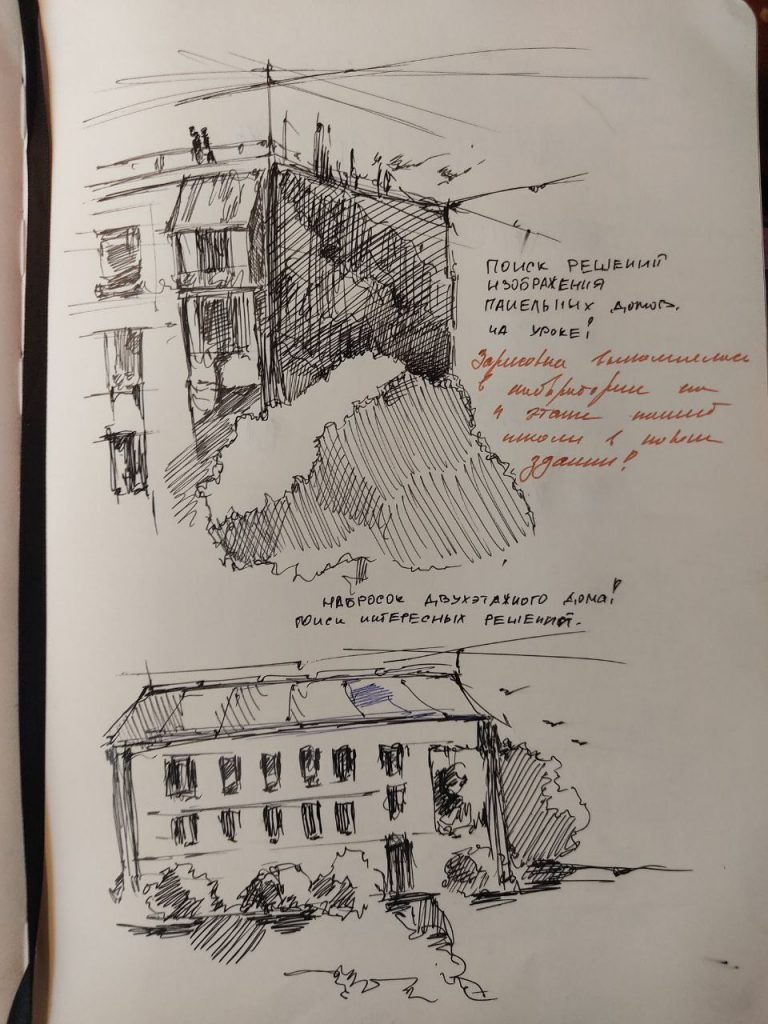 ПОИСК РЕШЕНИЙ
ИЗОБРАЖЕНИЯ
ПАНЕЛЬНЫХ ДОМОВ.
НА УРОКЕ!
Зарисовка выполнялась
в лабратории на
4 этаже нашей
школы в новом
здании!
НАБРОСОК ДВУХЭТАЖНОГО ДОМА!
ПОИСК ИНТЕРЕСНЫХ РЕШЕНИЙ.